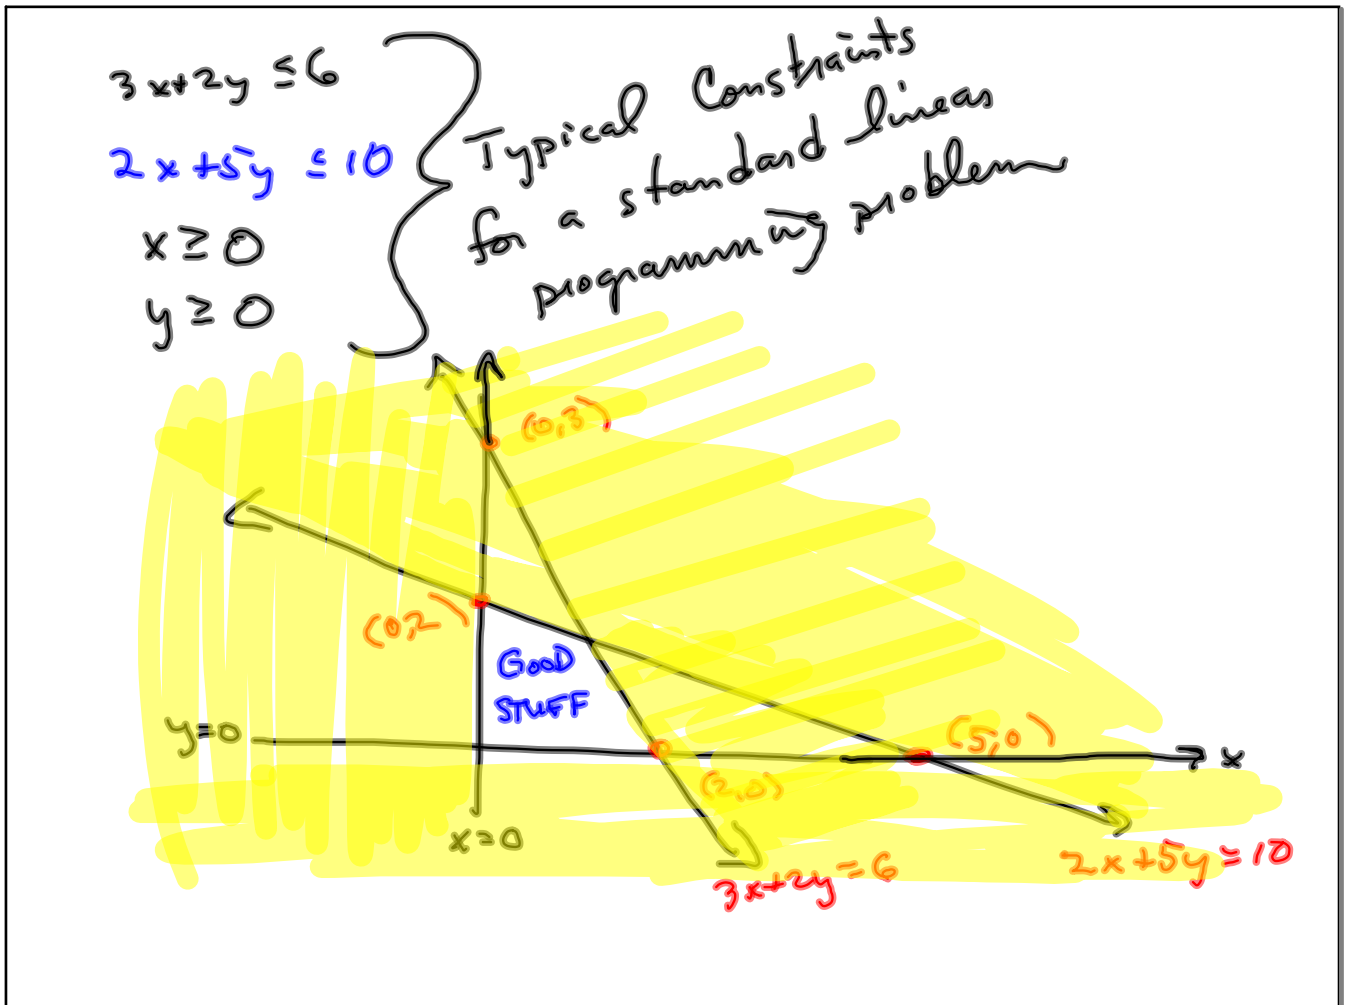 3x+2y ≤ 6
2x+5y ≤ 10
x ≥ 0
y ≥ 0
Typical Constraints
for a standard linear
programming problem
(0,3)
(0,2)
GOOD
STUFF
y=0
(5,0)
x
(2,0)
x=0
3x+2y=6
2x+5y=10